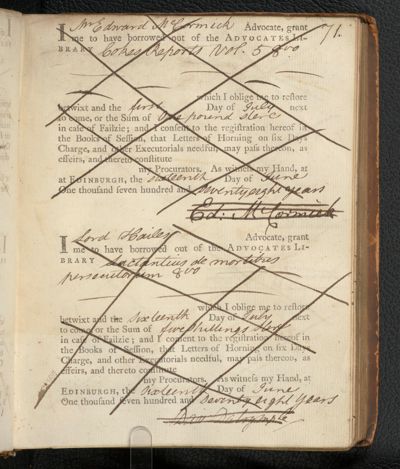 71.
I Mr Edward McCormick Advocate, grant
me to have borrowed out of the ADVOCATES LI-
BRARY Cokes Reports Vol. 5 8vo
which I oblige me to restore
betwixt and the first Day of July next
to come, or the Sum of One pound Sterl
in case of Failzie; and I consent to the registration hereof in
the Books of Session, that Letters of Horning on six Days
Charge, and other Executorials needful, may pass thereon, as
effeirs, and thereto constitute
my Procurators. As witness my Hand, at
at EDINBURGH, the Sixteenth Day of June
One thousand seven hundred and Seventy eight years
Ed: McCormick
I Lord Hailes Advocate, grant
me to have borrowed out of the ADVOCATES LI-
BRARY Lactantius de mortibus
persecutorum 8vo
which I oblige me to restore
betwixt and the Sixteenth Day of July next
to come, or the Sum of five shillings Sterl
in case of Failzie; and I consent to the registration hereof in
the Books of Session, that Letters of Horning on six Days
Charge, and other Executorials needful, may pass thereon, as
effeirs, and thereto constitute
my Procurators. As witness my Hand, at
EDINBURGH, the Sixteenth Day of June
One thousand seven hundred and Seventy eight years
Dav Dalrymple